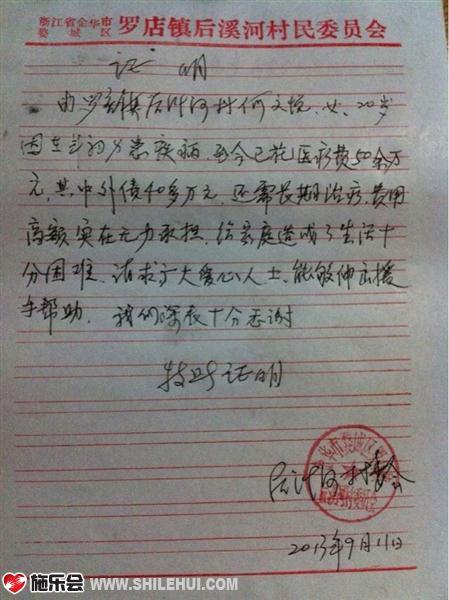 浙江省金华市
婺城区
罗店镇后溪河村民委员会
证明
由罗店镇后溪河村何文悦，女，20岁
因在年初身患疾病，至今已花医疗费50余万
元，其中外债40多万元，还需长期治疗，费用
高额实在无力承担，给家庭造成了生活十
分困难，请求广大爱心人士，能够伸出援
手帮助，我们深表十分感谢
特此证明
后溪河村委会
2013年9月11日
施乐会 WWW.SHILEHUI.COM